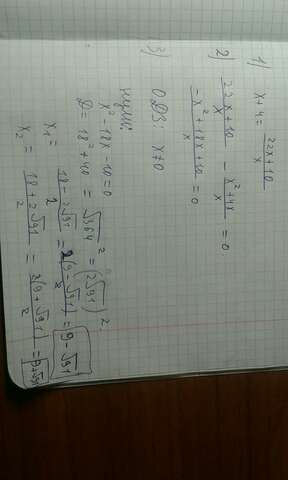 1) x+4 = \frac{22x+10}{x}
2) \frac{22x+10}{x} - \frac{x^2+4x}{x} = 0
\frac{-x^2+18x+10}{x} = 0
3) ОДЗ: x≠0
нули:
x^2-18x-10=0
D = 18^2+40 = \sqrt{364}^2 = (2\sqrt{91})^2
x_1 = \frac{18-2\sqrt{91}}{2} = \frac{2(9-\sqrt{91})}{2} = 9-\sqrt{91}
x_2 = \frac{18+2\sqrt{91}}{2} = \frac{2(9+\sqrt{91})}{2} = 9+\sqrt{91}